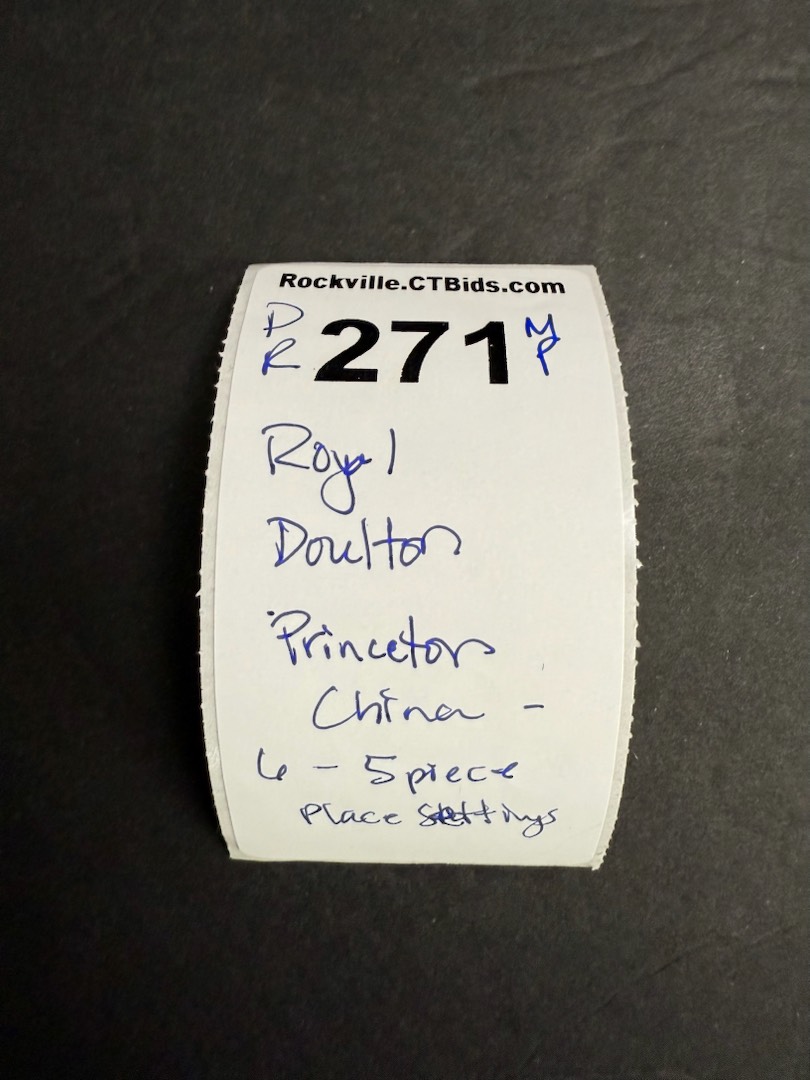 Rockville.CTBids.com
DR 271 MP
Royal
Doulton
Princeton
China -
6 - 5 piece
Place Settings